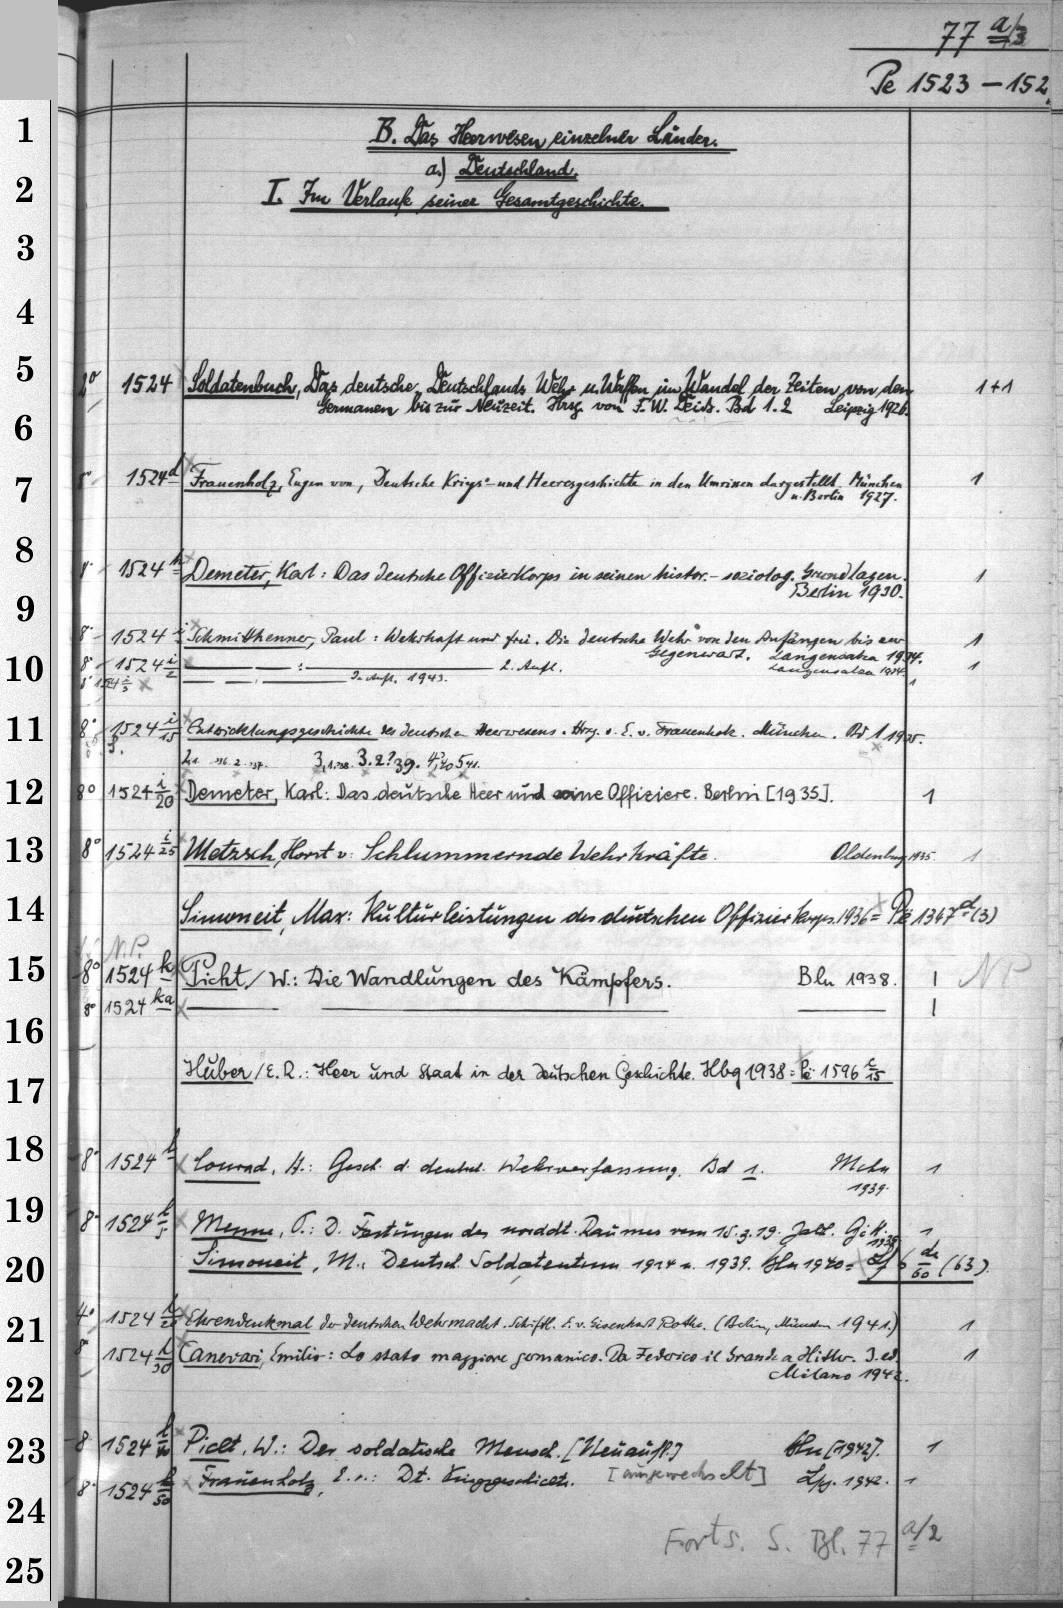 77 a/3
Pe 1523 – 152
B. Das Heerwesen einzelner Länder.
a.) Deutschland.
I. Im Verlaufe seiner Gesamtgeschichte.
2° 1524 Soldatenbuch, Das deutsche, Deutschlands Wehr u. Waffen im Wandel der Zeiten von den 1+1
Germanen bis zur Neuzeit. Hrsg. von F. W. Deiß. Bd 1.2 Leipzig 1926.
8° 1524 d Frauenholz, Eugen von, Deutsche Kriegs- und Heeresgeschichte in den Umrissen dargestellt. München 1
u. Berlin 1927.
8° 1524 h Demeter, Karl: Das deutsche Offizierkorps in seinen histor.-soziolog. Grundlagen. 1
Berlin 1930.
8° 1524 i Schmitthenner, Paul: Wehrhaft und frei. Die deutsche Wehr von den Anfängen bis zur 1
Gegenwart. Langensalza 1934.
8° 1524 i/2 — : — 2. Aufl. Langensalza 1934. 1
8° 1524 i/3 — 3. Aufl. 1943. 1
8° 1524 i/15 Entwicklungsgeschichte des deutschen Heerwesens. Hrsg. v. E. v. Frauenholz. München. Bd 1 1935.
3,1.38. 3.2?39. 4,40 5 41.
8° 1524 i/20 Demeter, Karl: Das deutsche Heer und seine Offiziere. Berlin [1935]. 1
8° 1524 i/25 Metzsch, Horst v: Schlummernde Wehrkräfte. Oldenburg 1935. 1
Simoneit, Max: Kulturleistungen des deutschen Offizierkorps. 1936 = Pe 1347 d (3)
N.P.
8° 1524 k Picht / W.: Die Wandlungen des Kämpfers. Bln 1938. 1 NP
8° 1524 ka — — — 1
Huber / E. R.: Heer und Staat in der deutschen Geschichte. Hbg 1938 = Pe 1596 c/15
8° 1524 l Conrad, H.: Gesch. d. deutsch. Wehrverfassung. Bd 1. Mchn 1
1939.
8° 1524 l/5 Menne, P.: D. Festungen des norddt. Raumes vom 15.-19. Jahrh. 1
1939
Simoneit, M.: Deutsch. Soldatentum 1914 u. 1939. Bln 1940 = 6 de/60 (63).
4° 1524 l/20 Ehrendenkmal der deutschen Wehrmacht. Schriftl. E. v. Eisenhart Rothe. (Berlin, München 1941.) 1
8° 1524 l/30 Canevari, Emilio: Lo stato maggiore germanico. Da Federico il Grande a Hitler. 3. ed. 1
Milano 1942.
8° 1524 l/40 Picht, W.: Der soldatische Mensch. [Neuaufl.] Bln [1942]. 1
8° 1524 l/50 Frauenholz, E. v.: Dt. Kriegsgeschichte. [ausgewechselt] Lpz. 1942. 1
Forts. S. Bl. 77 a/2
1
2
3
4
5
6
7
8
9
10
11
12
13
14
15
16
17
18
19
20
21
22
23
24
25